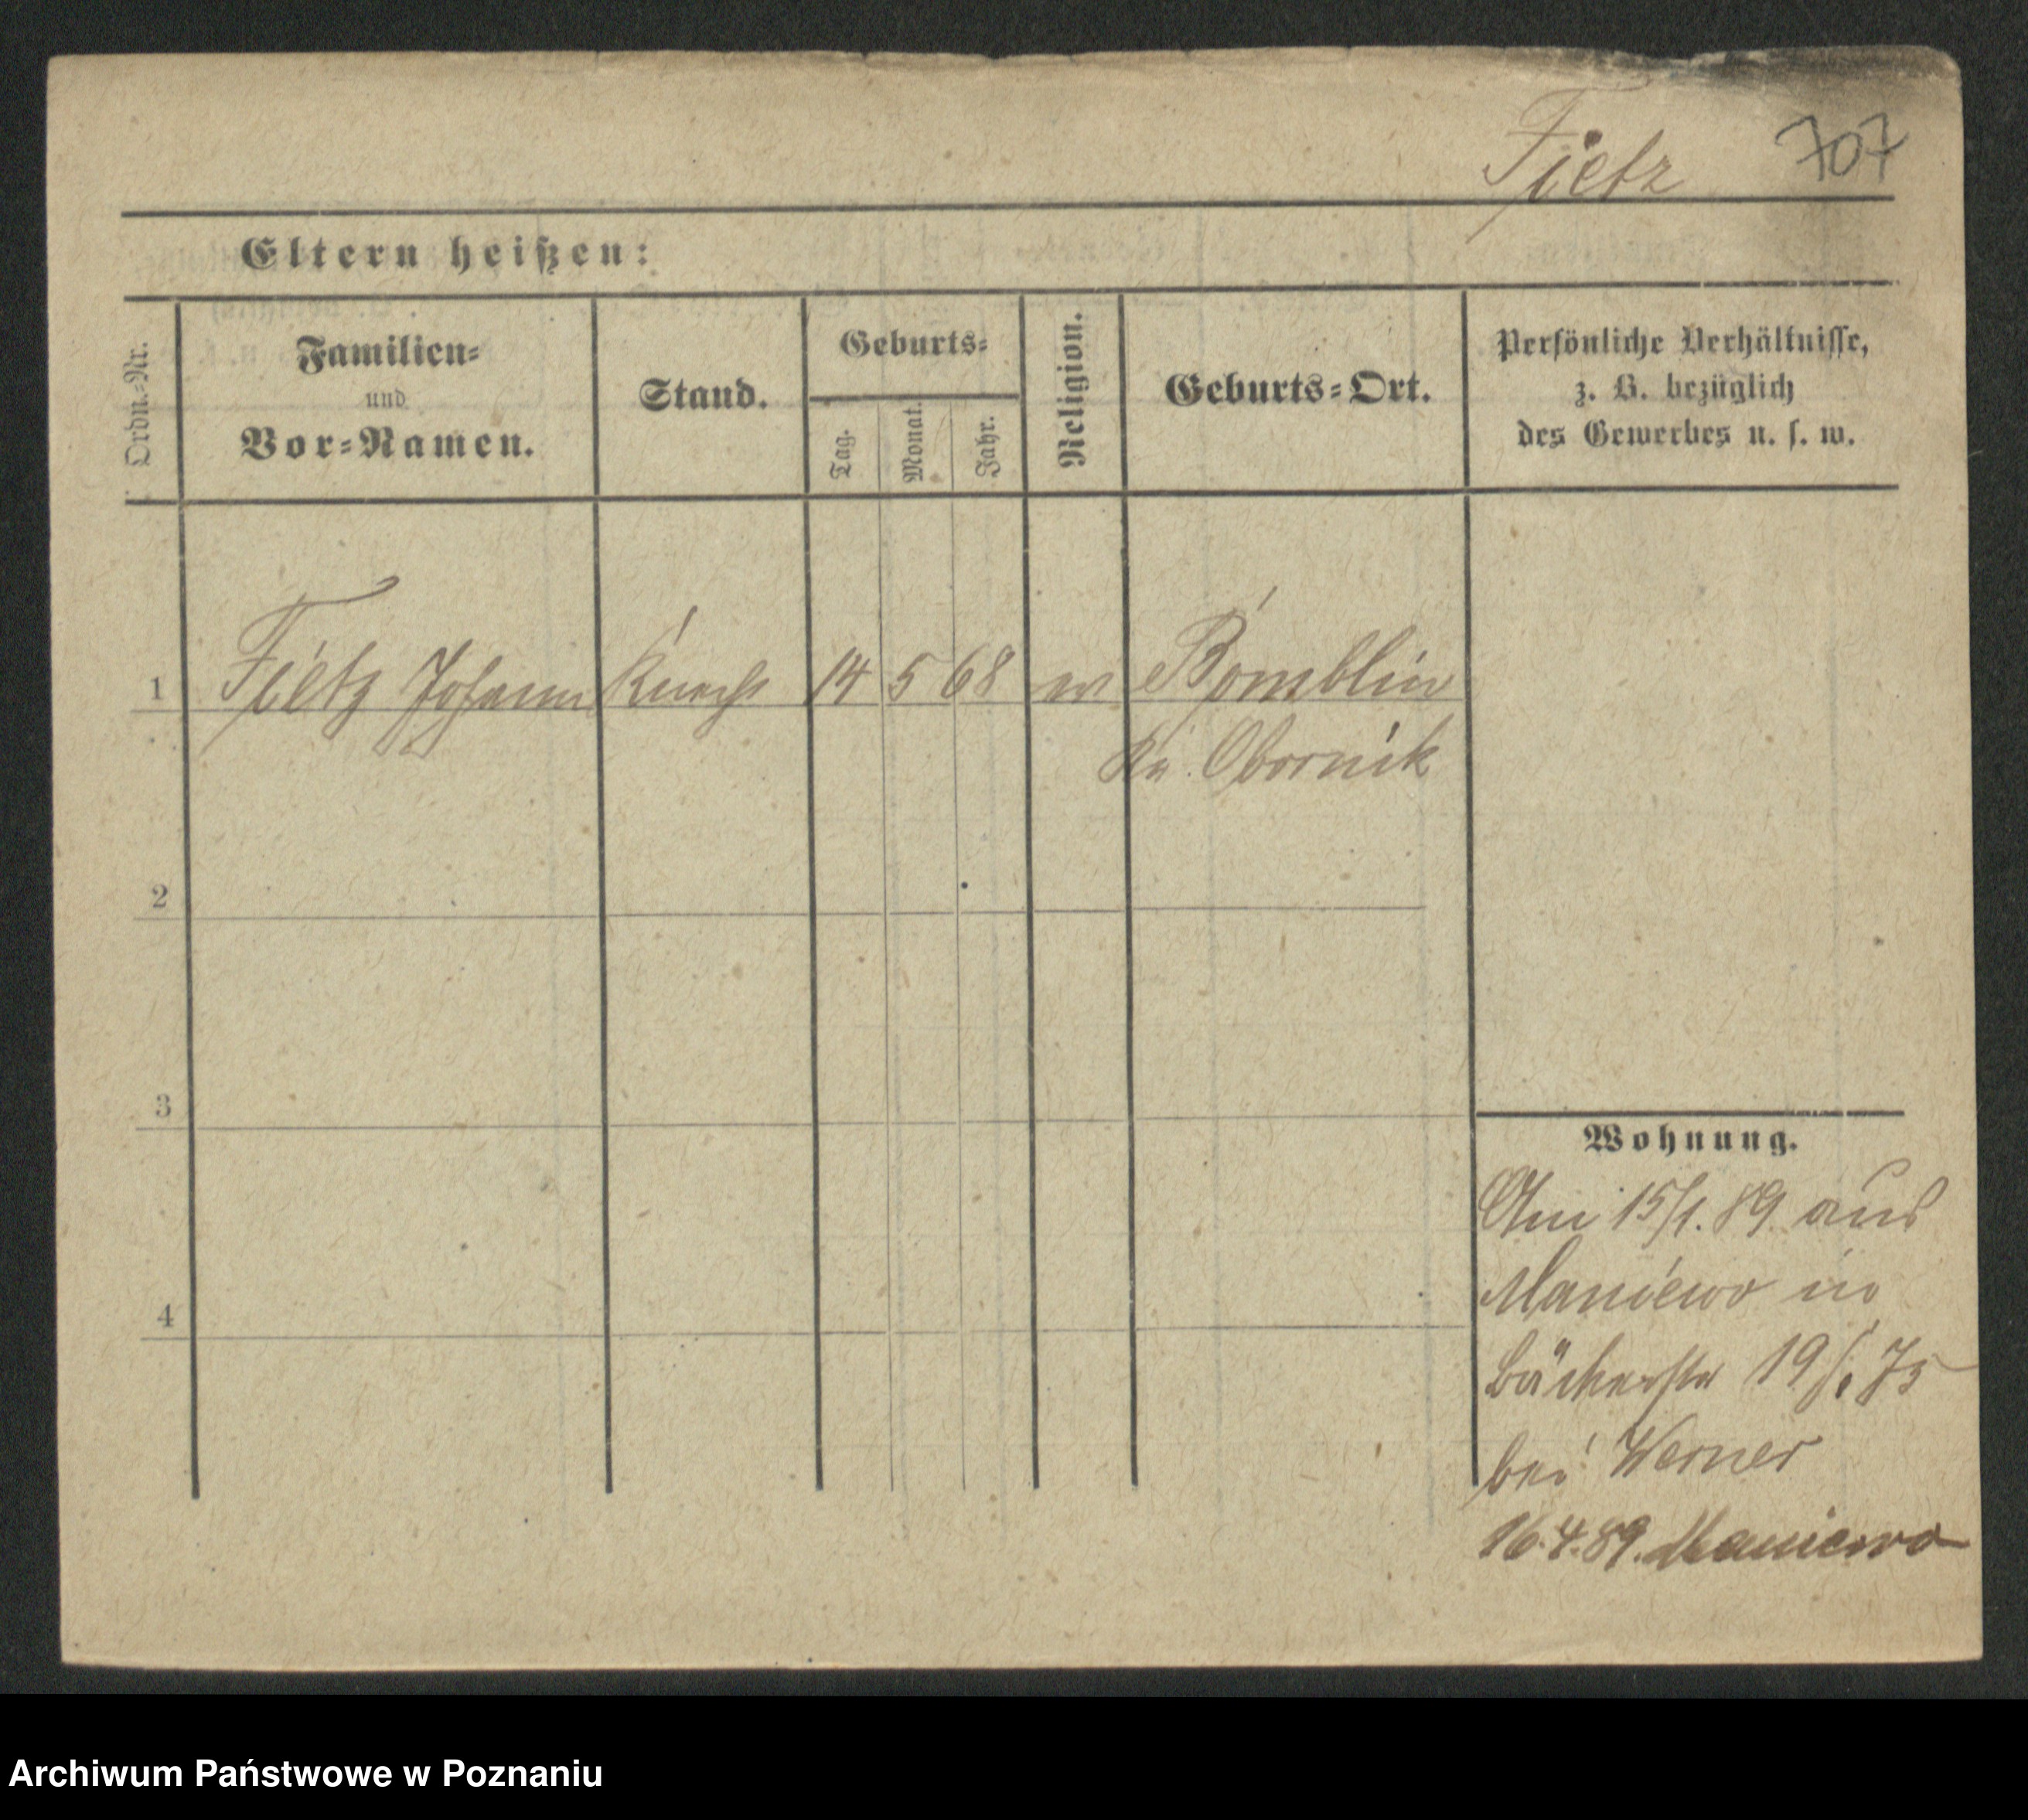 Fietz 707
Eltern heißen:
Ordn.=Nr.
Familien=
und
Vor=Namen.
Stand.
Geburts=
Tag.
Monat.
Jahr.
Religion.
Geburts=Ort.
Persönliche Verhältnisse,
z. B. bezüglich
des Gewerbes u. s. w.
1 Fietz Johann Knecht 14 5 68 ev Bomblin
Kr. Obornik
2
3
4
Wohnung.
Am 15/1. 89. aus
Maniewo in
Bäckerstr 19
bei Werner
16.4.89. Maniewo
Archiwum Państwowe w Poznaniu